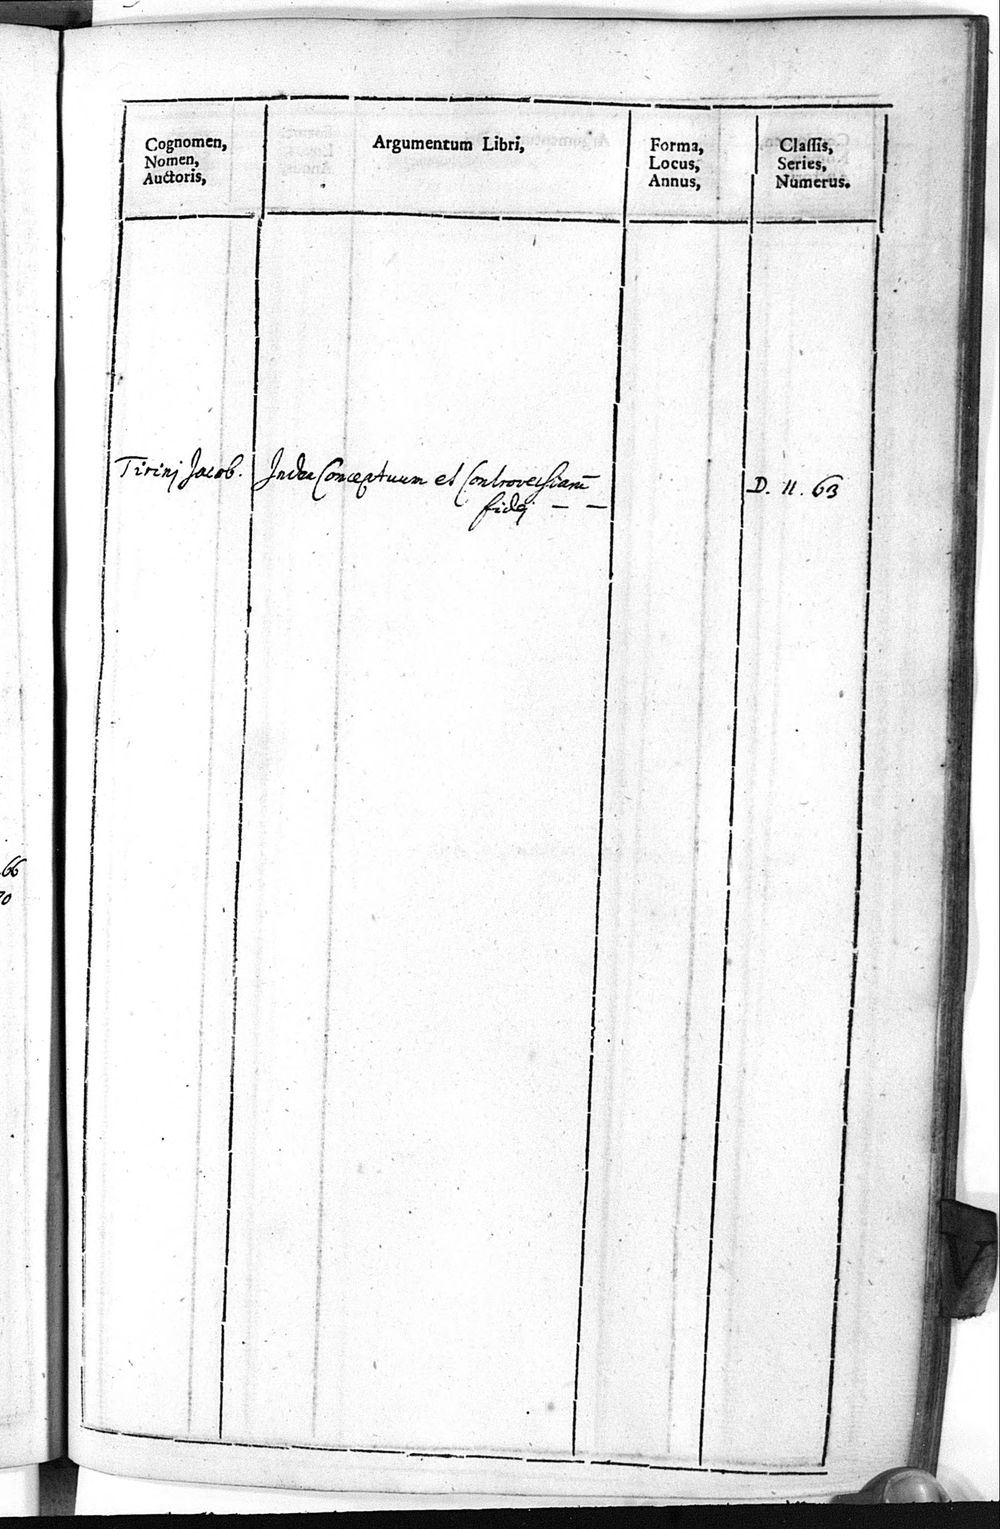 Cognomen,
Nomen,
Auctoris,
Argumentum Libri,
Forma,
Locus,
Annus,
Classis,
Series,
Numerus.
Tirinj Jacob. Index Conceptuum et Controversiarū D. 11. 63
fidej — —
66
70
V